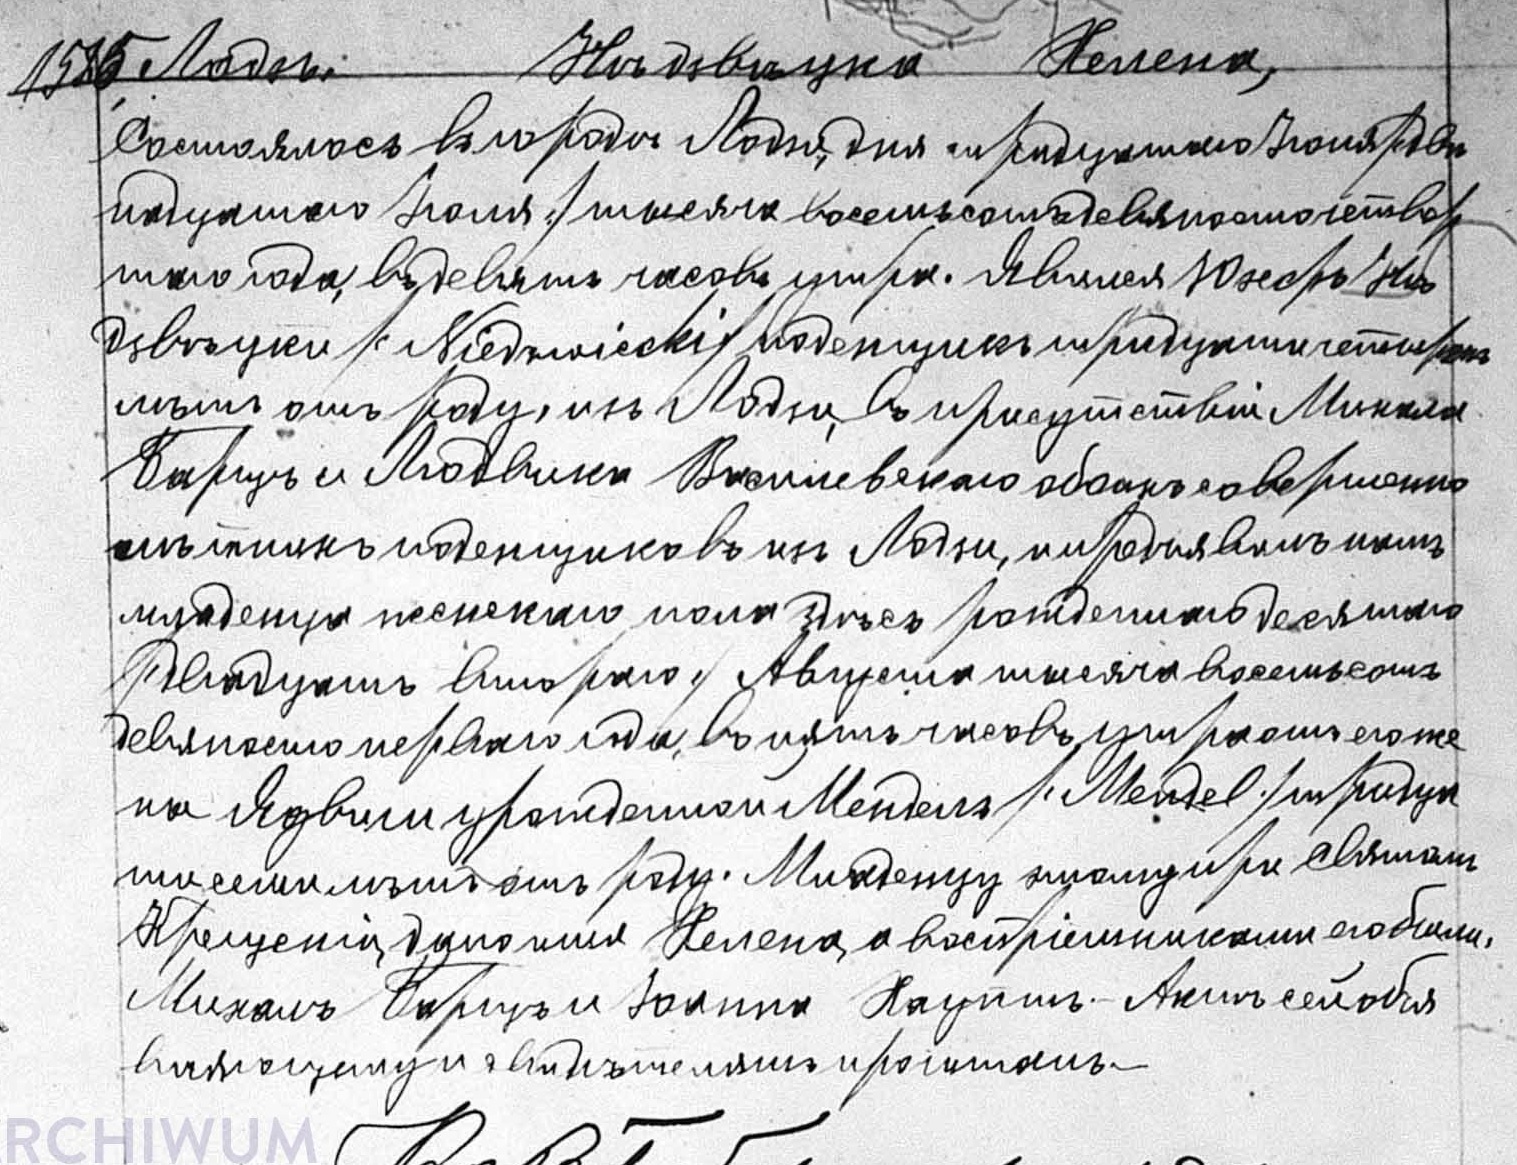 1585 Лодзь. Нѣдзвѣцка Хелена,
Состоялось въ городѣ Лодзи, дня тридцатаго Іюня /две
надцатаго Іюля :/ тысяча восемьсотъ девяносточетвер
таго года, въ девять часовъ утра. Явился Юзефъ Нѣ
дзвѣцки /: Niedzwiecki :/ поденщикъ тридцати четырехъ
лѣтъ отъ роду, изъ Лодзи, въ присутствіи Михала
Барцъ и Людвика Василевскаго обоихъ совершенно
лѣтнихъ поденщиковъ изъ Лодзи, и предъявилъ намъ
младенца женскаго пола здѣсь рожденнаго десятаго
/двадцать втораго :/ Августа тысяча восемьсотъ
девяносто перваго года, въ пять часовъ утра отъ его же
ны Ядвиги урожденной Мендель /: Mendel :/ тридца
ти семи лѣтъ отъ роду. Младенцу этому при Святомъ
Крещеніи, дано имя Хелена, а воспріемниками его были.
Михалъ Барцъ и Іоанна Хауптъ. — Актъ сей объя
вляющему и свидѣтелямъ прочитанъ. —
ARCHIWUM